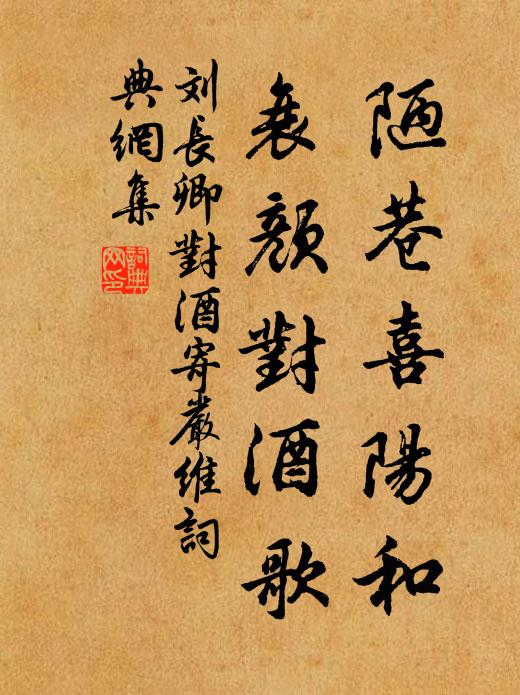 陋巷喜陽和
衰顏對酒歌
刘長卿對酒寄嚴維詞
典網集
詞典
网印